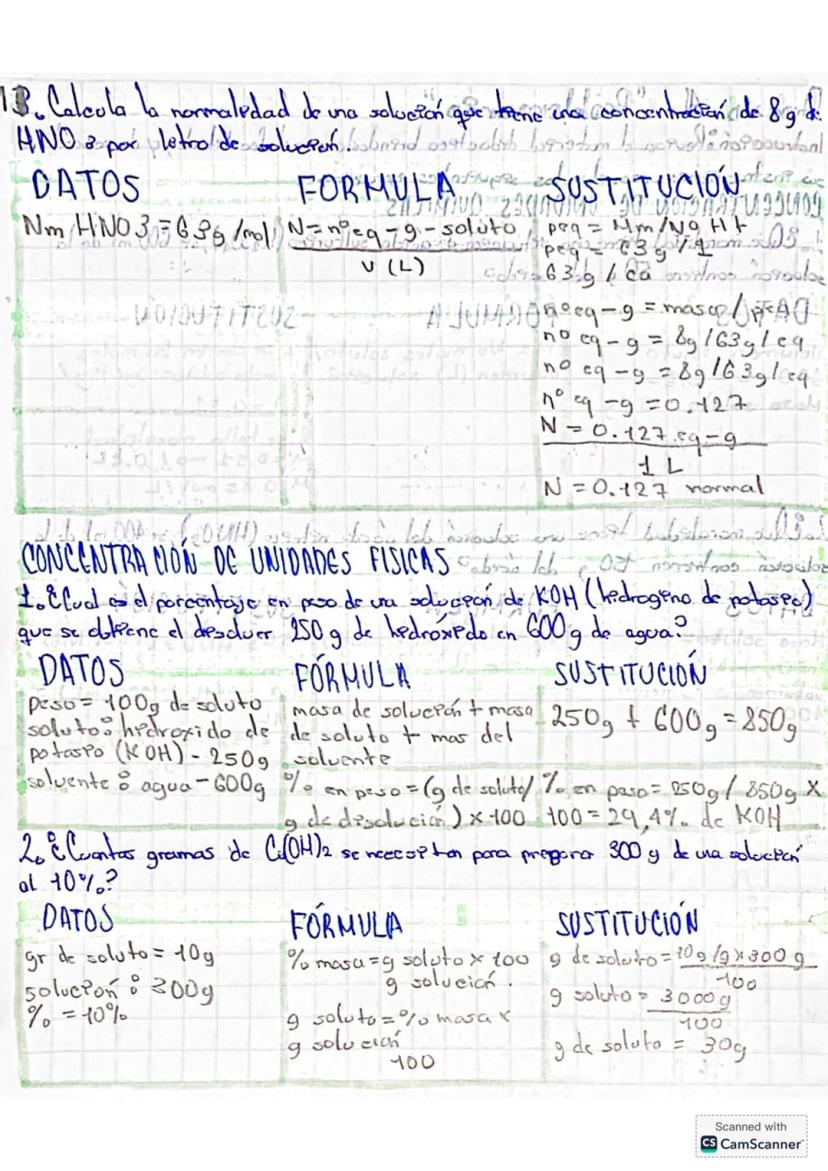 13. Calcula la normaledad de una solución que tiene una concentración de 8 g de
HNO3 por letro de solución.
DATOS FORMULA SUSTITUCIÓN
Nm HNO3 = 63g/mol N = nº eq - g - soluto peq = Mm/Nº H+
V (L) peq = 63 g / 1
63 g / eq
nº eq - g = masa / peq
nº eq - g = 8g / 63g / eq
nº eq - g = 8g / 63g / eq
nº eq - g = 0.127
N = 0.127 eq - g
1 L
N = 0.127 normal
CONCENTRACIÓN DE UNIDADES FISICAS
1. ¿Cual es el porcentaje en peso de una solución de KOH (hidrogeno de potasio)
que se obtiene el desolver 250 g de hedróxedo en 600 g de agua?
DATOS FÓRMULA SUSTITUCIÓN
peso = 100g de soluto masa de solución + masa 250g + 600g = 850g
soluto: hidroxido de de soluto + mas del
potasio (KOH) - 250g solvente
solvente: agua - 600g % en peso = (g de soluto/ % en peso = 250g / 850g x
g de disolución) x 100 100 = 29,4% de KOH
2. ¿Cuantos gramos de C(OH)2 se necesitan para prepara 300 g de una solución
al 10%?
DATOS FÓRMULA SUSTITUCIÓN
gr de soluto = 10g % masa = g soluto x 100 g de soluto = 10g/g x 300 g
solución: 300g g solución. 100
% = 10% g soluto = % masa x g soluto = 3000g
g solución 100
100 g de soluto = 30g
Scanned with
CS CamScanner